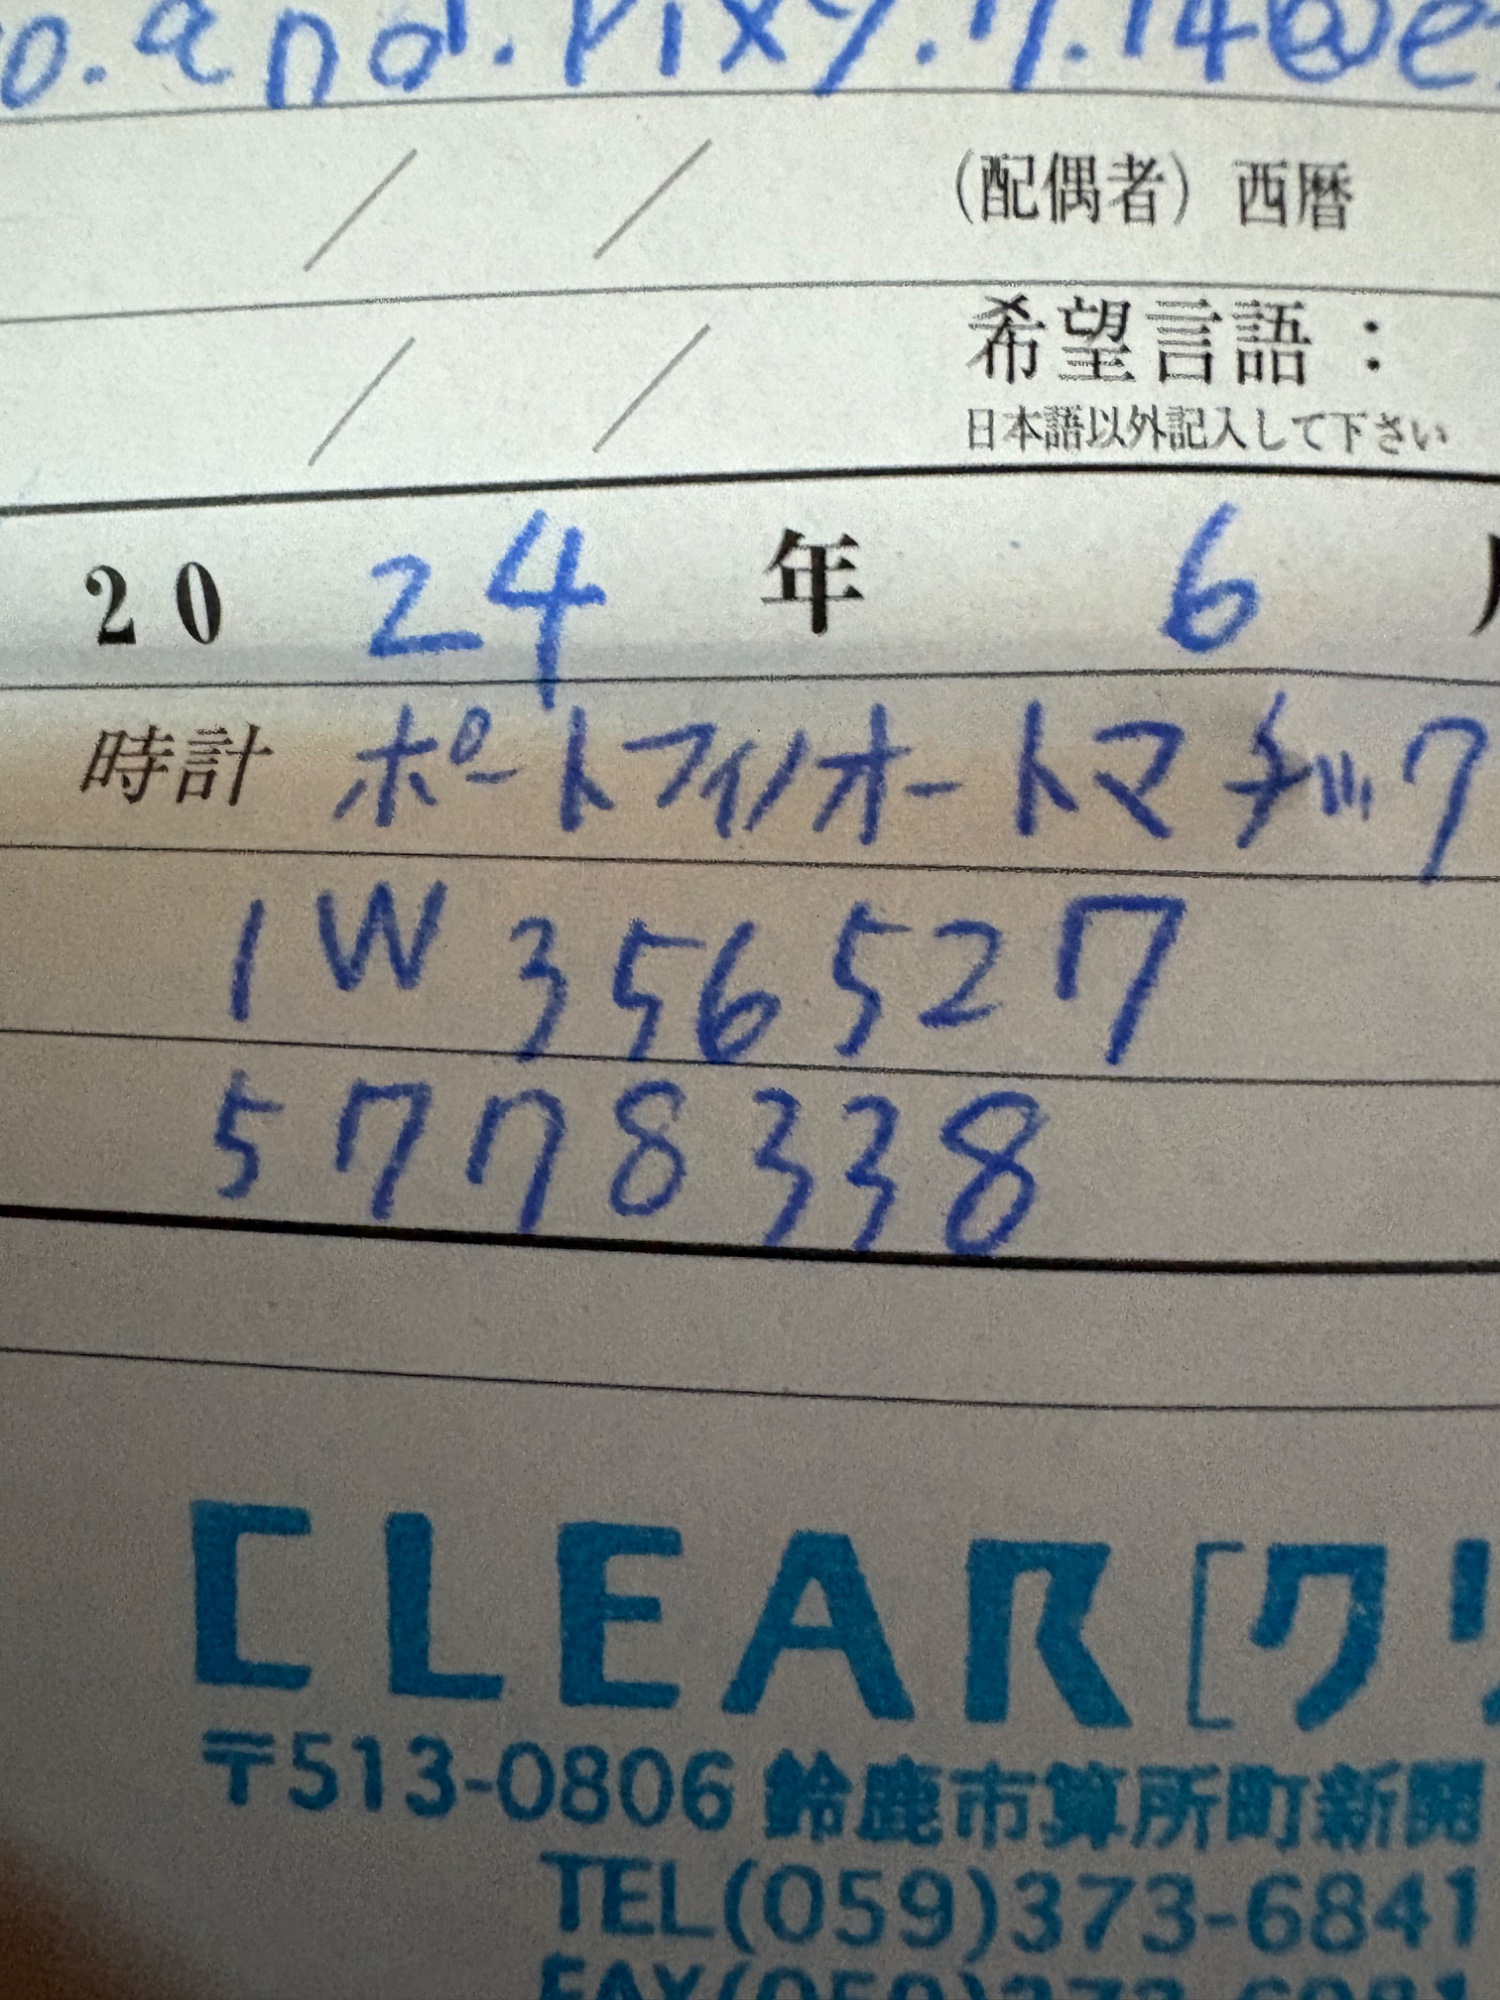 o.and.pixy.7.14@e
／ ／ (配偶者) 西暦
／ ／ 希望言語：
日本語以外記入して下さい
20 24 年 6 月
時計 ポートフィノオートマチック
IW356527
5778338
CLEAR [クリ
〒513-0806 鈴鹿市算所町新開
TEL(059)373-6841
FAX(059)373-6981